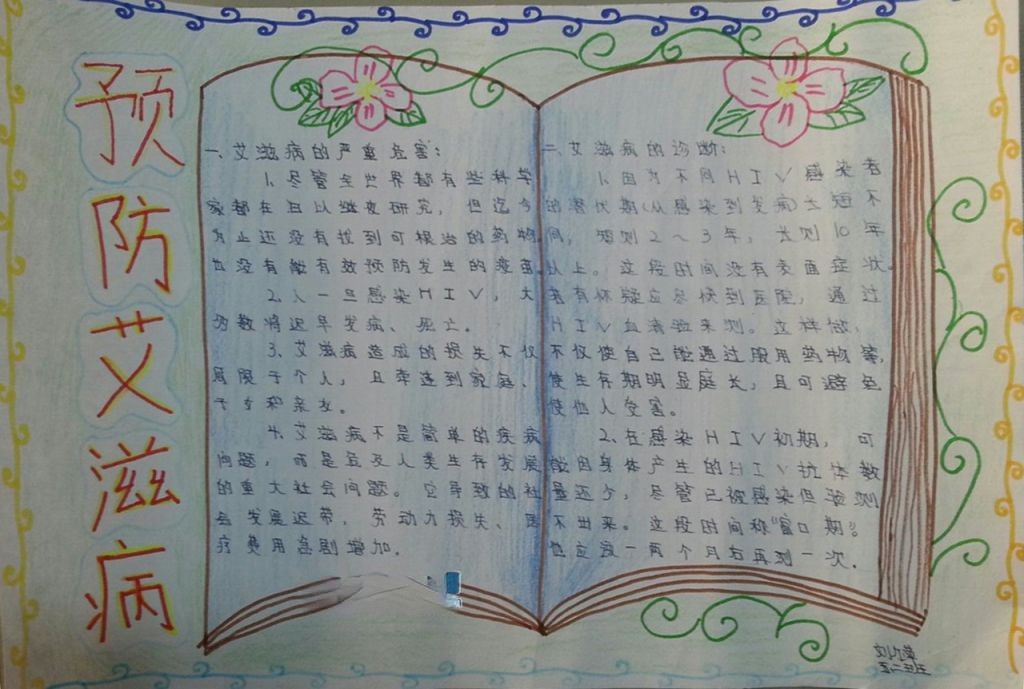 预防艾滋病
一、艾滋病的严重危害：
1、尽管全世界都有些科学
家都在日以继夜研究，但迄今
为止还没有找到可根治的药物
也没有能有效预防发生的疫苗。
2、人一旦感染HIV，大
多数将迟早发病、死亡。
3、艾滋病造成的损失不仅
局限于个人，且牵连到家庭、
子女和亲友。
4、艾滋病不是简单的疾病
问题，而是危及人类生存发展
的重大社会问题。它导致的社
会发展迟带，劳动力损失、医
疗费用急剧增加.
二、艾滋病的诊断：
1、因为不同HIV感染者
的潜伏期(从感染到发病)长短不
同，短则2～3年，长则10年
以上。这段时间没有表面症状。
若有怀疑应尽快到医院，通过
HIV血液验来测。这样做，
不仅使自己能通过服用药物等，
使生存期明显延长，且可避免
使他人受害。
2、在感染HIV初期，可
能因身体产生的HIV抗体数
量还少，尽管已被感染但验测
不出来。这段时间称“窗口期”。
也应该一两个月右再测一次.